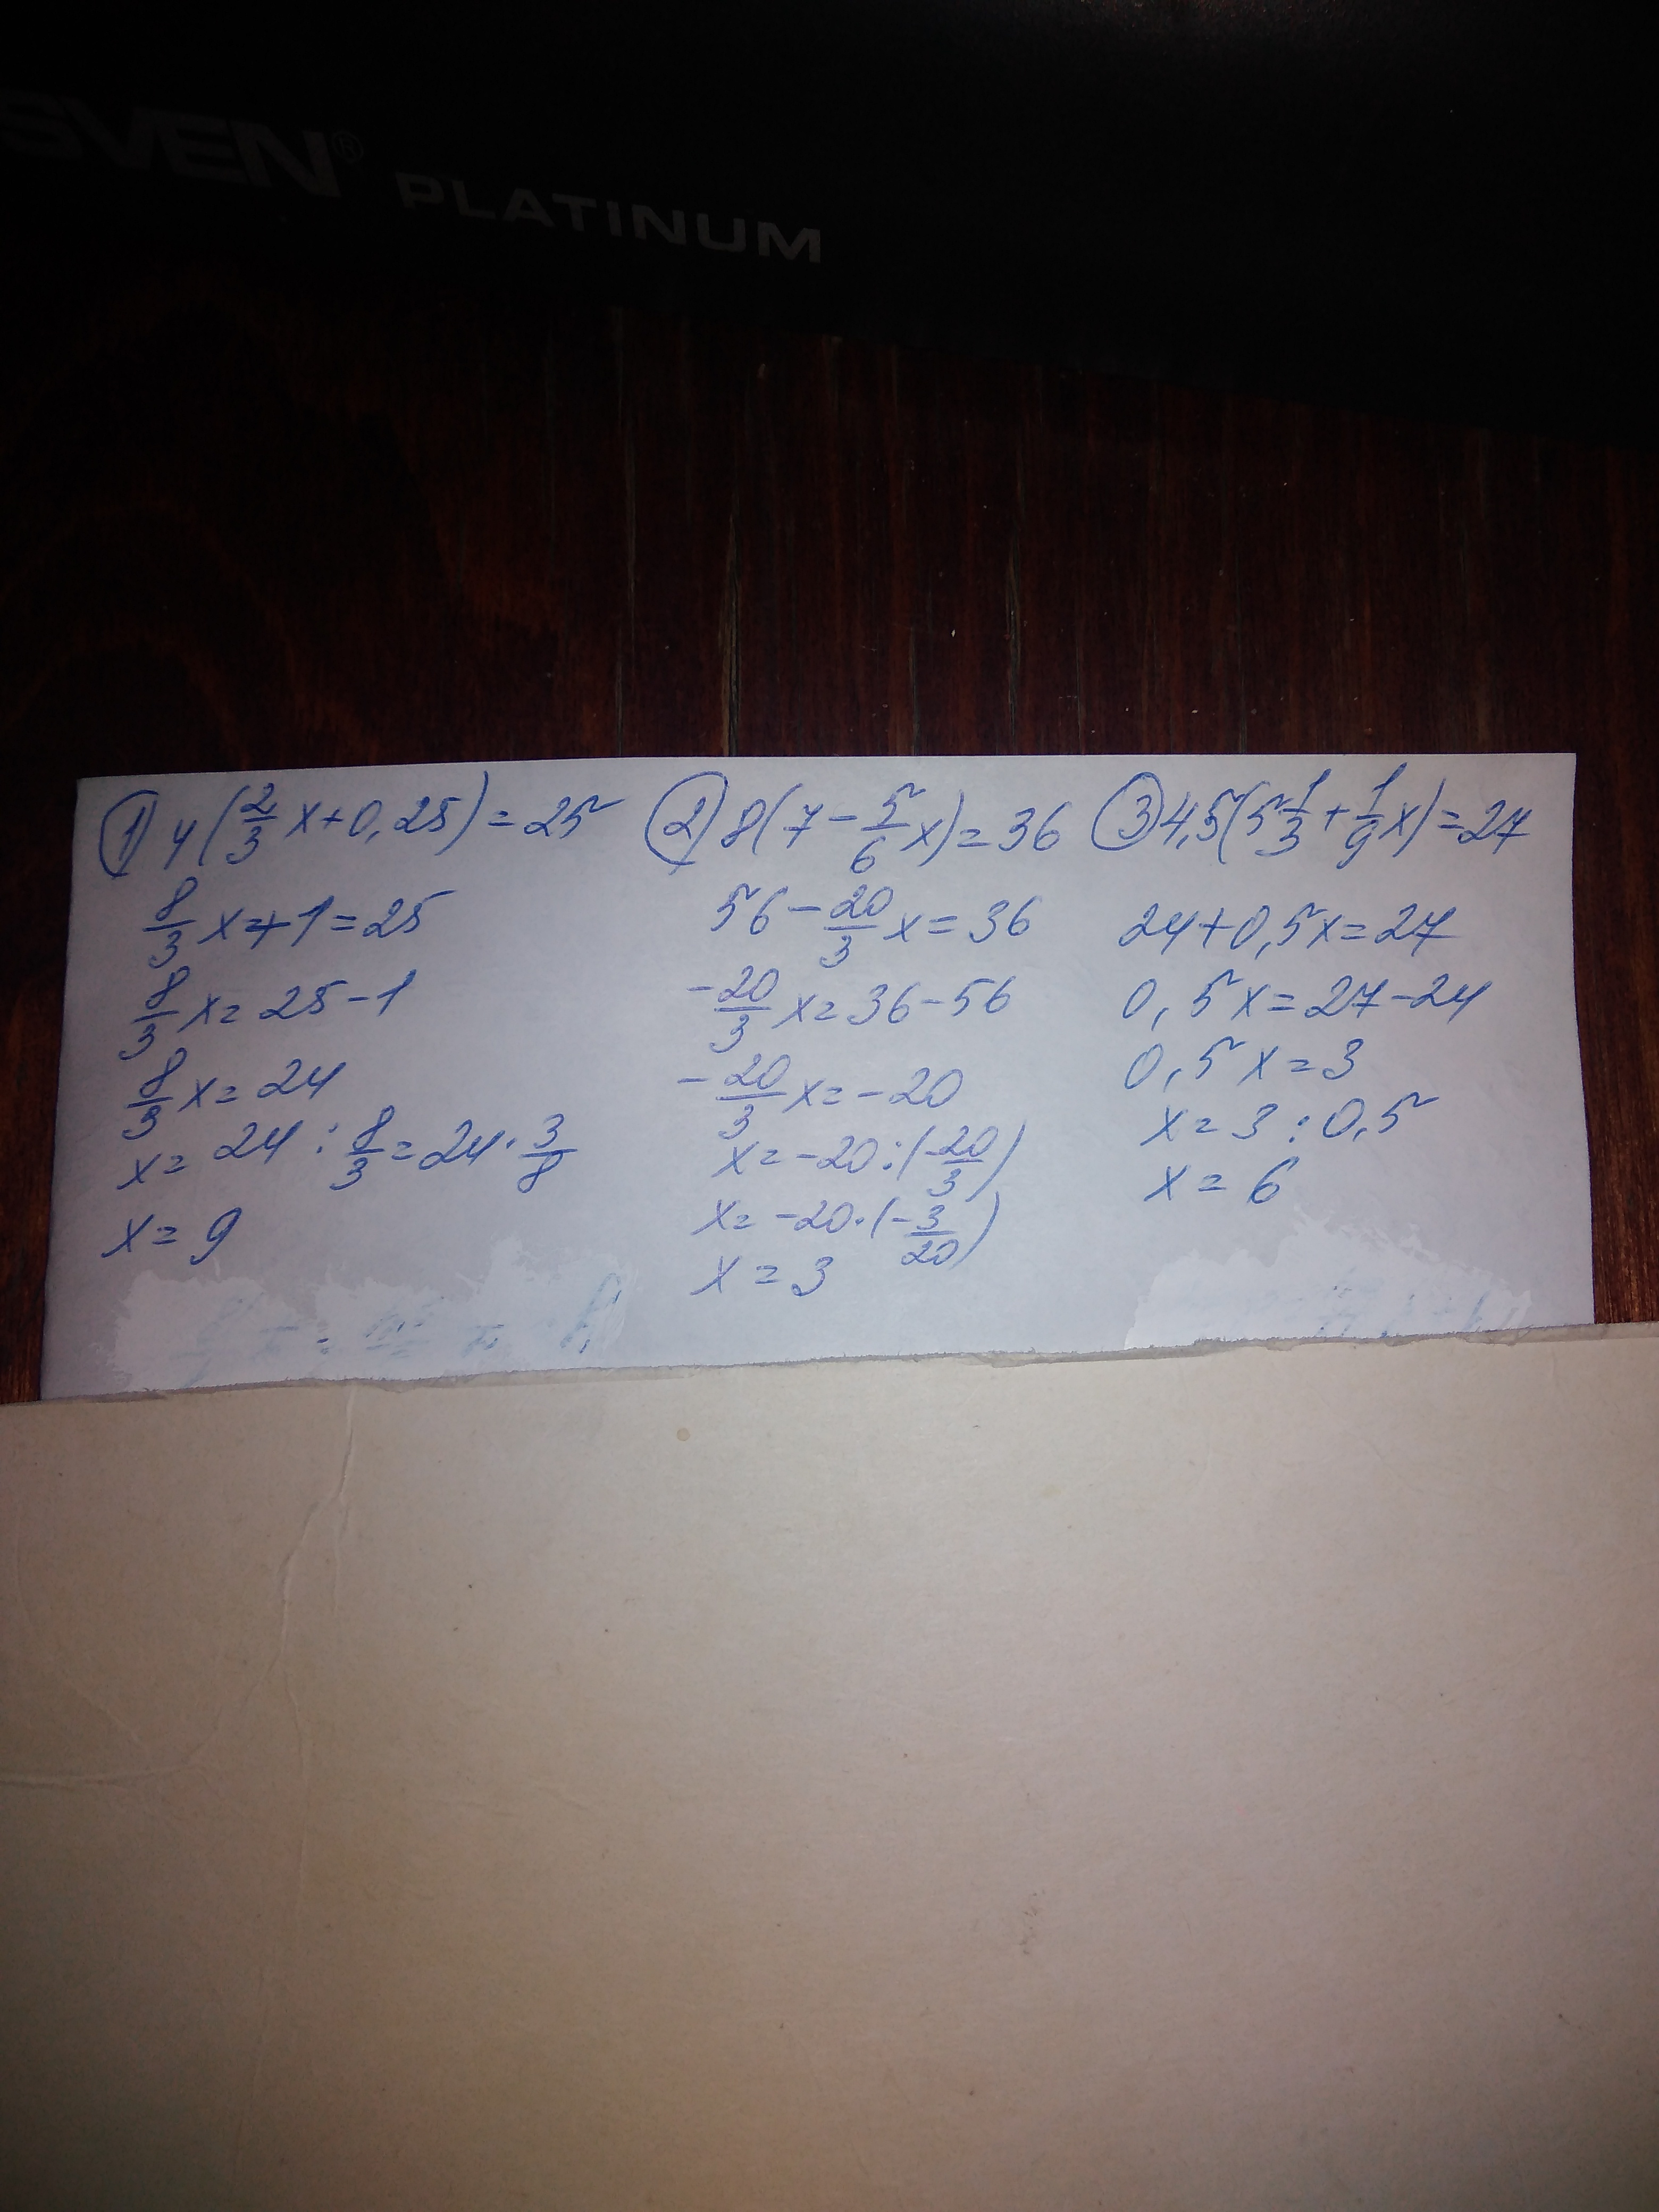 SVEN®
PLATINUM
① 4(2/3 x+0,25)=25
8/3 x+1=25
8/3 x=25-1
8/3 x=24
x=24:8/3=24·3/8
x=9
② 8(7-5/6 x)=36
56-20/3 x=36
-20/3 x=36-56
-20/3 x=-20
x=-20:(-20/3)
x=-20·(-3/20)
x=3
③ 4,5(5 1/3+1/9 x)=27
24+0,5x=27
0,5x=27-24
0,5x=3
x=3:0,5
x=6